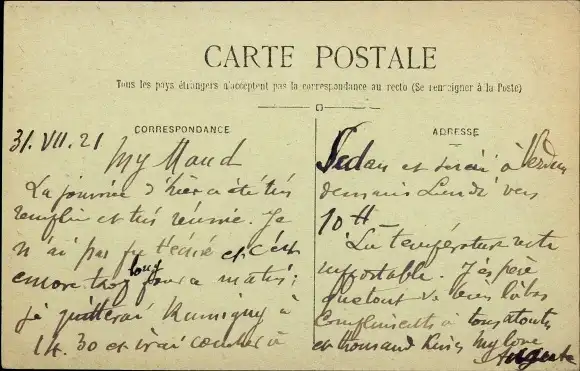 CARTE POSTALE
Tous les pays étrangers n'acceptent pas la correspondance au recto (Se renseigner à la Poste)
CORRESPONDANCE
31. VII. 21
My Maud
La journée d'hier a été très
remplie et très réussie. Je
n'ai pas pu t'écrire et c'est
encore trop long pour ce matin;
je quitterai Rumigny à
14.30 et irai coucher à
ADRESSE
Sedan et serai à Verdun
demain Lundi vers
10 H
La température reste
supportable. J'espère
que tout va bien là bas
Compliments à tous à toutes
et thousand kisses My love
Auguste